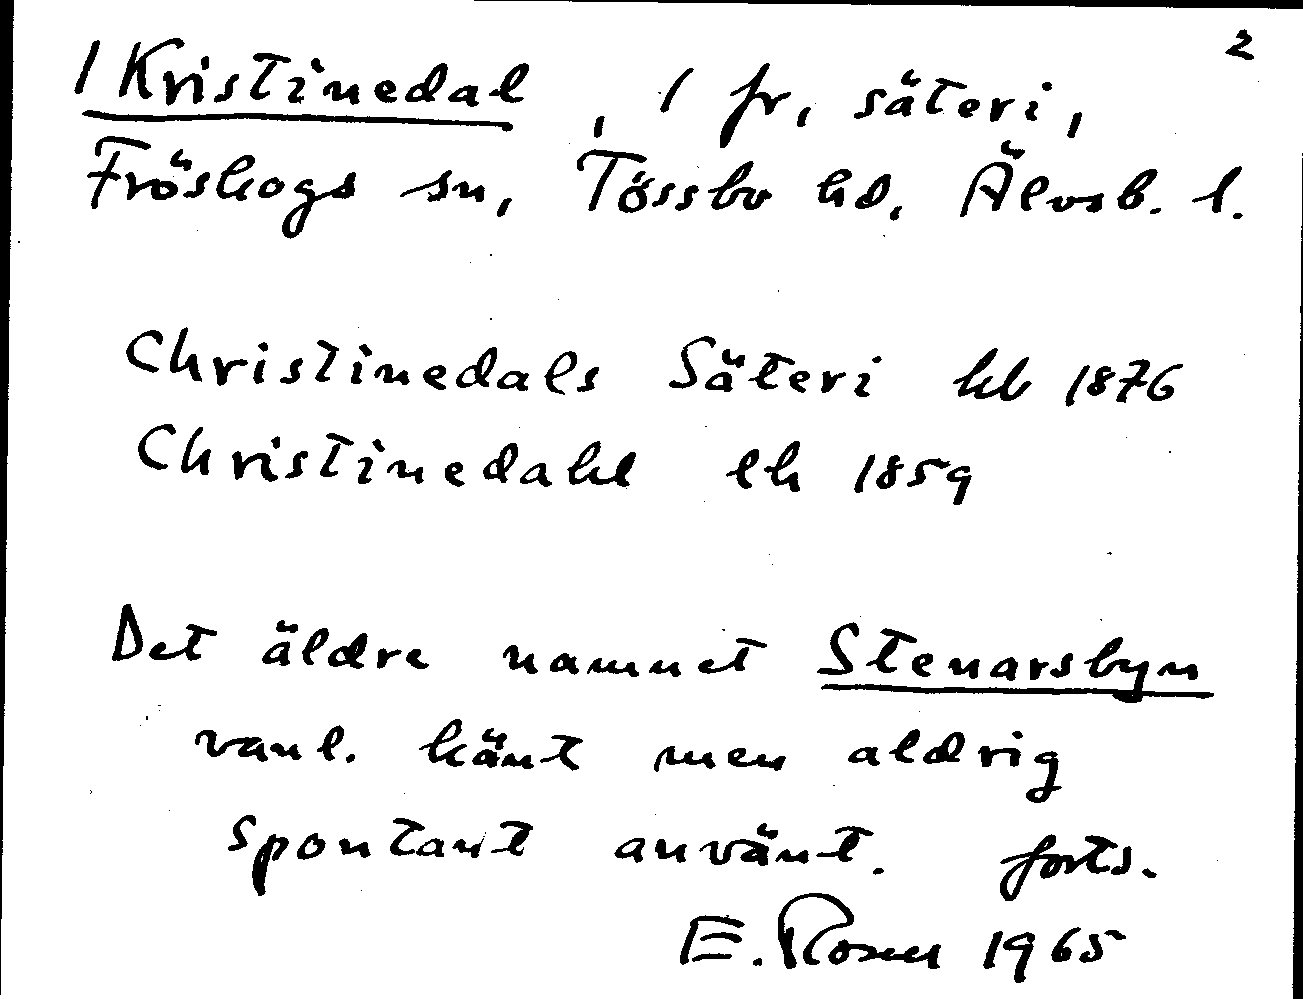 2
1 Kristinedal, 1 fr, säteri,
Fröskogs sn, Tössbo hd, Älvsb. l.
Christinedals Säteri kb 1876
Christinedahl lh 1859
Det äldre namnet Stenarsbyn
vanl. känt men aldrig
spontant använt. forts.
E. 1965